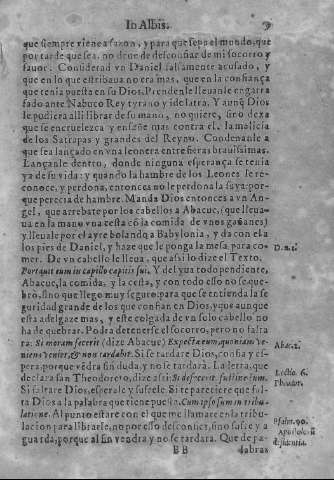 In Albis.
que siempre viene a sazon, y para que sepa el mundo, que
por tarde que sea, no deue de desconfiar de mi socorro y
fauor. Considerad vn Daniel falsamente acusado, y
que en lo que estribaua no era mas, que en la confiança
que tenia puesta en su Dios. Prendenle lleuanle engarra
fado ante Nabuco Rey tyrano y idolatra. Y aunq̃ Dios
le pudiera alli librar de su mano, no quiere, sino dexa
que se encruelezca y ensañe mas contra el, la malicia
de los Satrapas y grandes del Reyno. Condenanle a
que sea lançado en vna leonera entre fieras brauissimas.
Lançanle dentro, donde ninguna esperança se tenia
ya de su vida: y quando la hambre de los Leones le re-
conoce, y perdona, entonces no le perdona la suya: por-
que perecia de hambre. Manda Dios entonces a vn An-
gel, que arrebate por los cabellos a Abacuc, (que lleua-
ua en la mano vna cesta cõ la comida de vnos gañanes)
y lleuale por el ayre bolando a Babylonia, y da con el a
los pies de Daniel, y haze que le ponga la mesa para co-
mer. De vn cabello le lleua, que assi lo dize el Texto.
Portauit eum in capillo capitis sui. Y del yua todo pendiente,
Abacuc, la comida, y la cesta, y con todo esso no se que-
bró, sino que llego muy seguro: para que se entienda la se
guridad grande de los que confian en Dios, y que aunque
esta adelgaze mas, y este colgada de vn solo cabello no
ha de quebrar. Podra detenerse el socorro, pero no falta
ra: Si moram fecerit (dize Abacuc) Expecta eum, quoniam ve
niens veniet, & non tardabit. Si se tardare Dios, confia y es-
pera, porque vẽdra sin duda, y no se tardarà. La letra, que
declara san Theodoreto, dize assi: Si defecerit sustine eum.
Si faltare Dios, esperale y sufrele. Si te pareciere que fal-
ta Dios a la palabra que tiene puesta. Cum ipso sum in tribu-
latione. Al punto estare con el que me llamare en la tribu-
lacion para librarle, no por esso desconfies, sino sufre y a
guarda, porque al fin vendra y no se tardara. Que de pa-
B B dabras
Abac. 2.
Lectio. 6.
Theodor.
Psalm. 90.